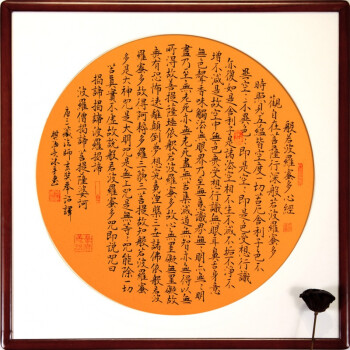 般若波羅蜜多心經
觀自在菩薩行深般若波羅蜜多
時照見五蘊皆空度一切苦厄舍利子色不
異空空不異色色即是空空即是色受想行識
亦復如是舍利子是諸法空相不生不滅不垢不淨不
增不減是故空中無色無受想行識無眼耳鼻舌身意
無色聲香味觸法無眼界乃至無意識界無無明亦無無明
盡乃至無老死亦無老死盡無苦集滅道無智亦無得以無
所得故菩提薩埵依般若波羅蜜多故心無罣礙無罣礙故
無有恐怖遠離顛倒夢想究竟涅槃三世諸佛依般若波
羅蜜多故得阿耨多羅三藐三菩提故知般若波羅蜜
多是大神咒是大明咒是無上咒是無等等咒能除一切
苦真實不虛故說般若波羅蜜多咒即說咒曰
揭諦揭諦波羅揭諦
波羅僧揭諦菩提薩婆訶
唐三藏法師玄奘奉詔譯